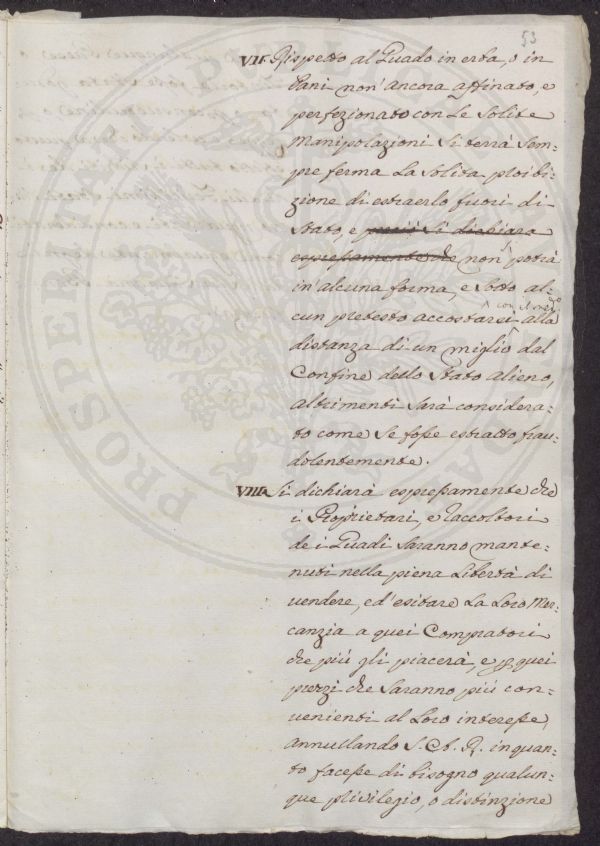 53
VII. Rispetto al Guado in erba, o in
Pani non' ancora affinato, e
perfezionato con Le Solite
Manipolazioni Si terrà Sem=
pre ferma La Solita ploibi=
zione di estraerlo fuori di
Stato, e Si dichiara
espressamente che non' potrà
in' alcuna forma, e Sotto al=
con il med.o
cun pretesto accostarsi alla
distanza di un' miglio dal
Confine dello Stato alieno,
altrimenti Sarà considera=
to come Se fosse estratto frau=
dolentemente.
VIII. Si dichiara espressamente che
i Proprietari, e Raccoltori
de i Guadi Saranno mante=
nuti nella piena Libertà di
vendere, ed' esitare La Loro Mer=
canzia a quei Compratori
che più gli piacerà, e per quei
prezzi che Saranno più con=
venienti al Loro interesse,
annullando S. A. R. in quan=
to facesse di bisogno qualun=
que plivilegio, o distinzione
PROSPERITATI PUBLICAE